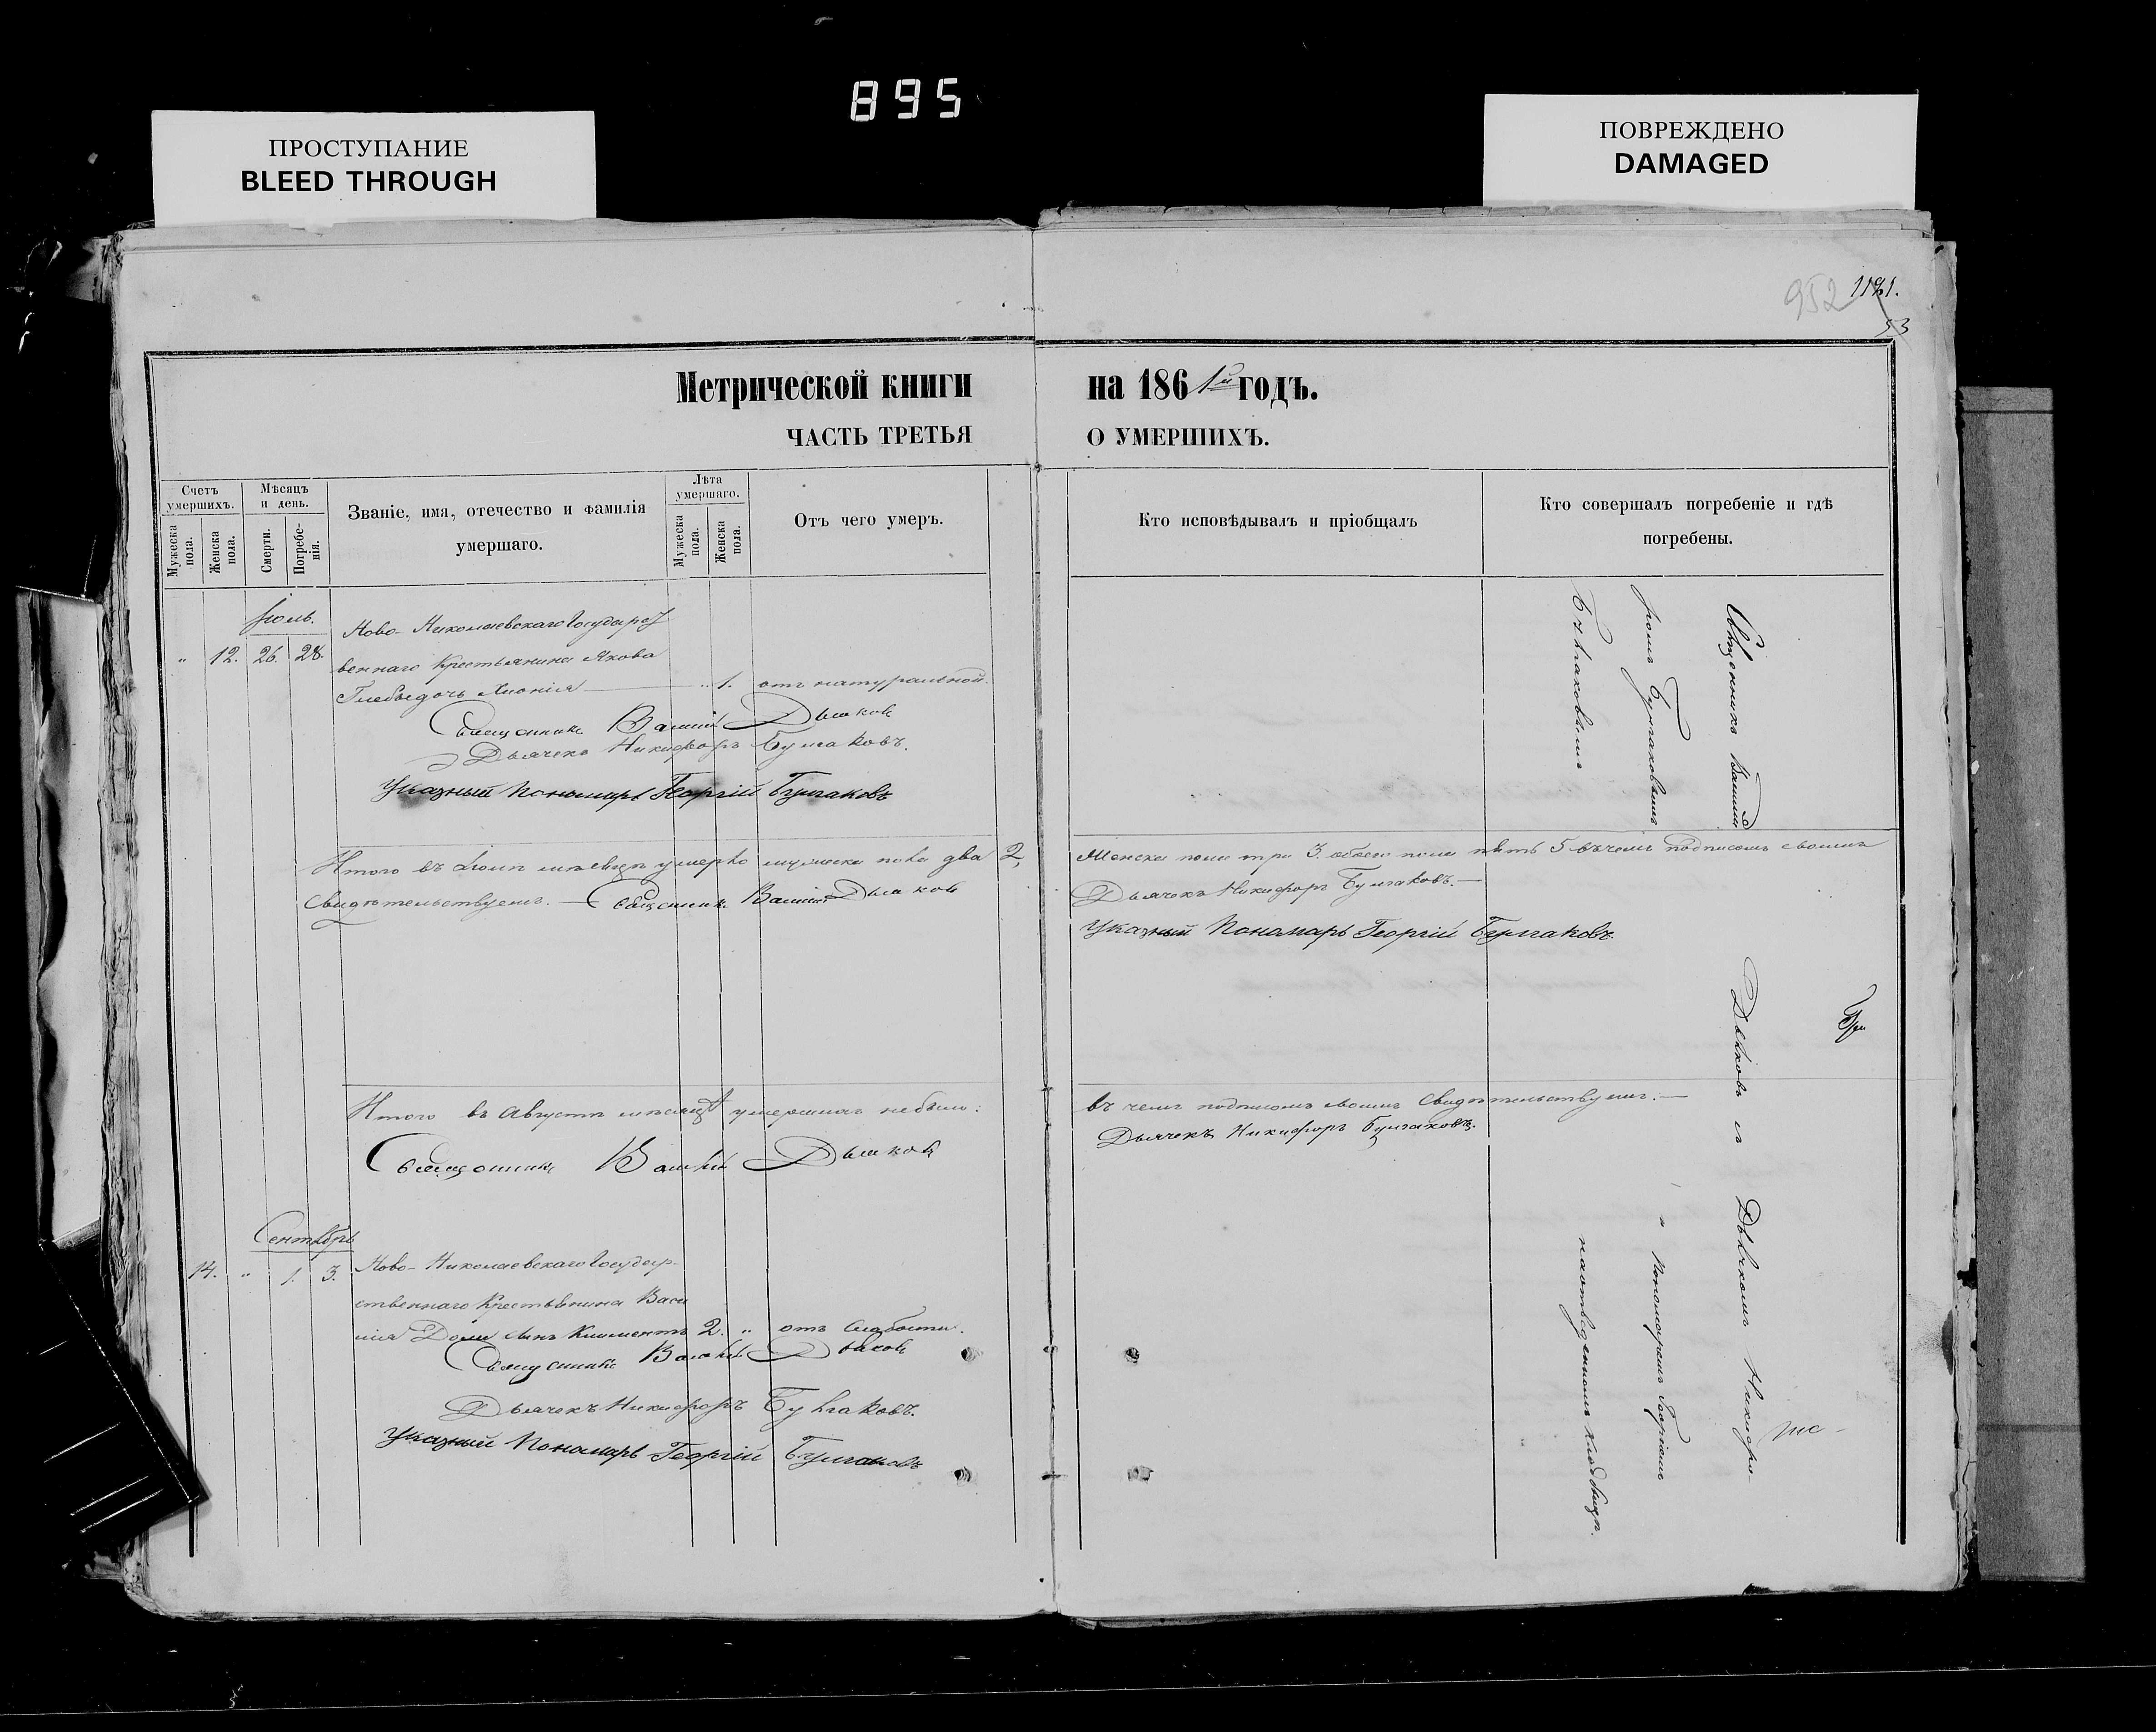 895
ПРОСТУПАНИЕ
BLEED THROUGH
ПОВРЕЖДЕНО
DAMAGED
952 1181.
53
Метрической книги на 1861й годъ.
ЧАСТЬ ТРЕТЬЯ О УМЕРШИХЪ.
Счетъ умершихъ.
Мужеска пола.
Женска пола.
Мѣсяцъ и день.
Смерти.
Погребенія.
Званіе, имя, отечество и фамилія
умершаго.
Лѣта умершаго.
Мужеска пола.
Женска пола.
Отъ чего умеръ.
Кто исповѣдывалъ и пріобщалъ
Кто совершалъ погребеніе и гдѣ
погребены.
Іюль.
Ново-Николаевскаго Государст
„ 12. 26. 28. веннаго Крестьянина Якова
дочь „ 1. отъ натуральной.
Священникъ Василій Дьяковъ
Дьячекъ Никифоръ Булгаковъ.
Указный Пономарь Георгій Булгаковъ
Итого въ Іюлѣ мѣсяцѣ умерло мужеска пола два 2,
Женска пола три 3. обоего пола пять 5 въ чемъ подписомъ своимъ
Свидѣтельствуемъ. — Священникъ Василій Дьяковъ
Дьячекъ Никифоръ Булгаковъ. —
Указный Пономарь Георгій Булгаковъ.
Итого въ Августѣ мѣсяцѣ умершихъ небыло:
въ чемъ подписомъ своимъ Свидѣтельствуемъ. —
Священникъ Василій Дьяковъ
Дьячекъ Никифоръ Булгаковъ.
Сентябрь
14. „ 1. 3. Ново-Николаевскаго Государ-
ственнаго Крестьянина Васи
лія сынъ Климентъ 2. „ отъ слабости.
Священникъ Василій Дьяковъ
Дьячекъ Никифоръ Булгаковъ.
Указный Пономарь Георгій Булгаковъ
Священникъ Василій Дьяковъ съ Дьячкомъ Никифо-
ромъ Булгаковымъ и Пономаремъ Георгіемъ
Булгаковымъ на отведенномъ кладбищѣ.